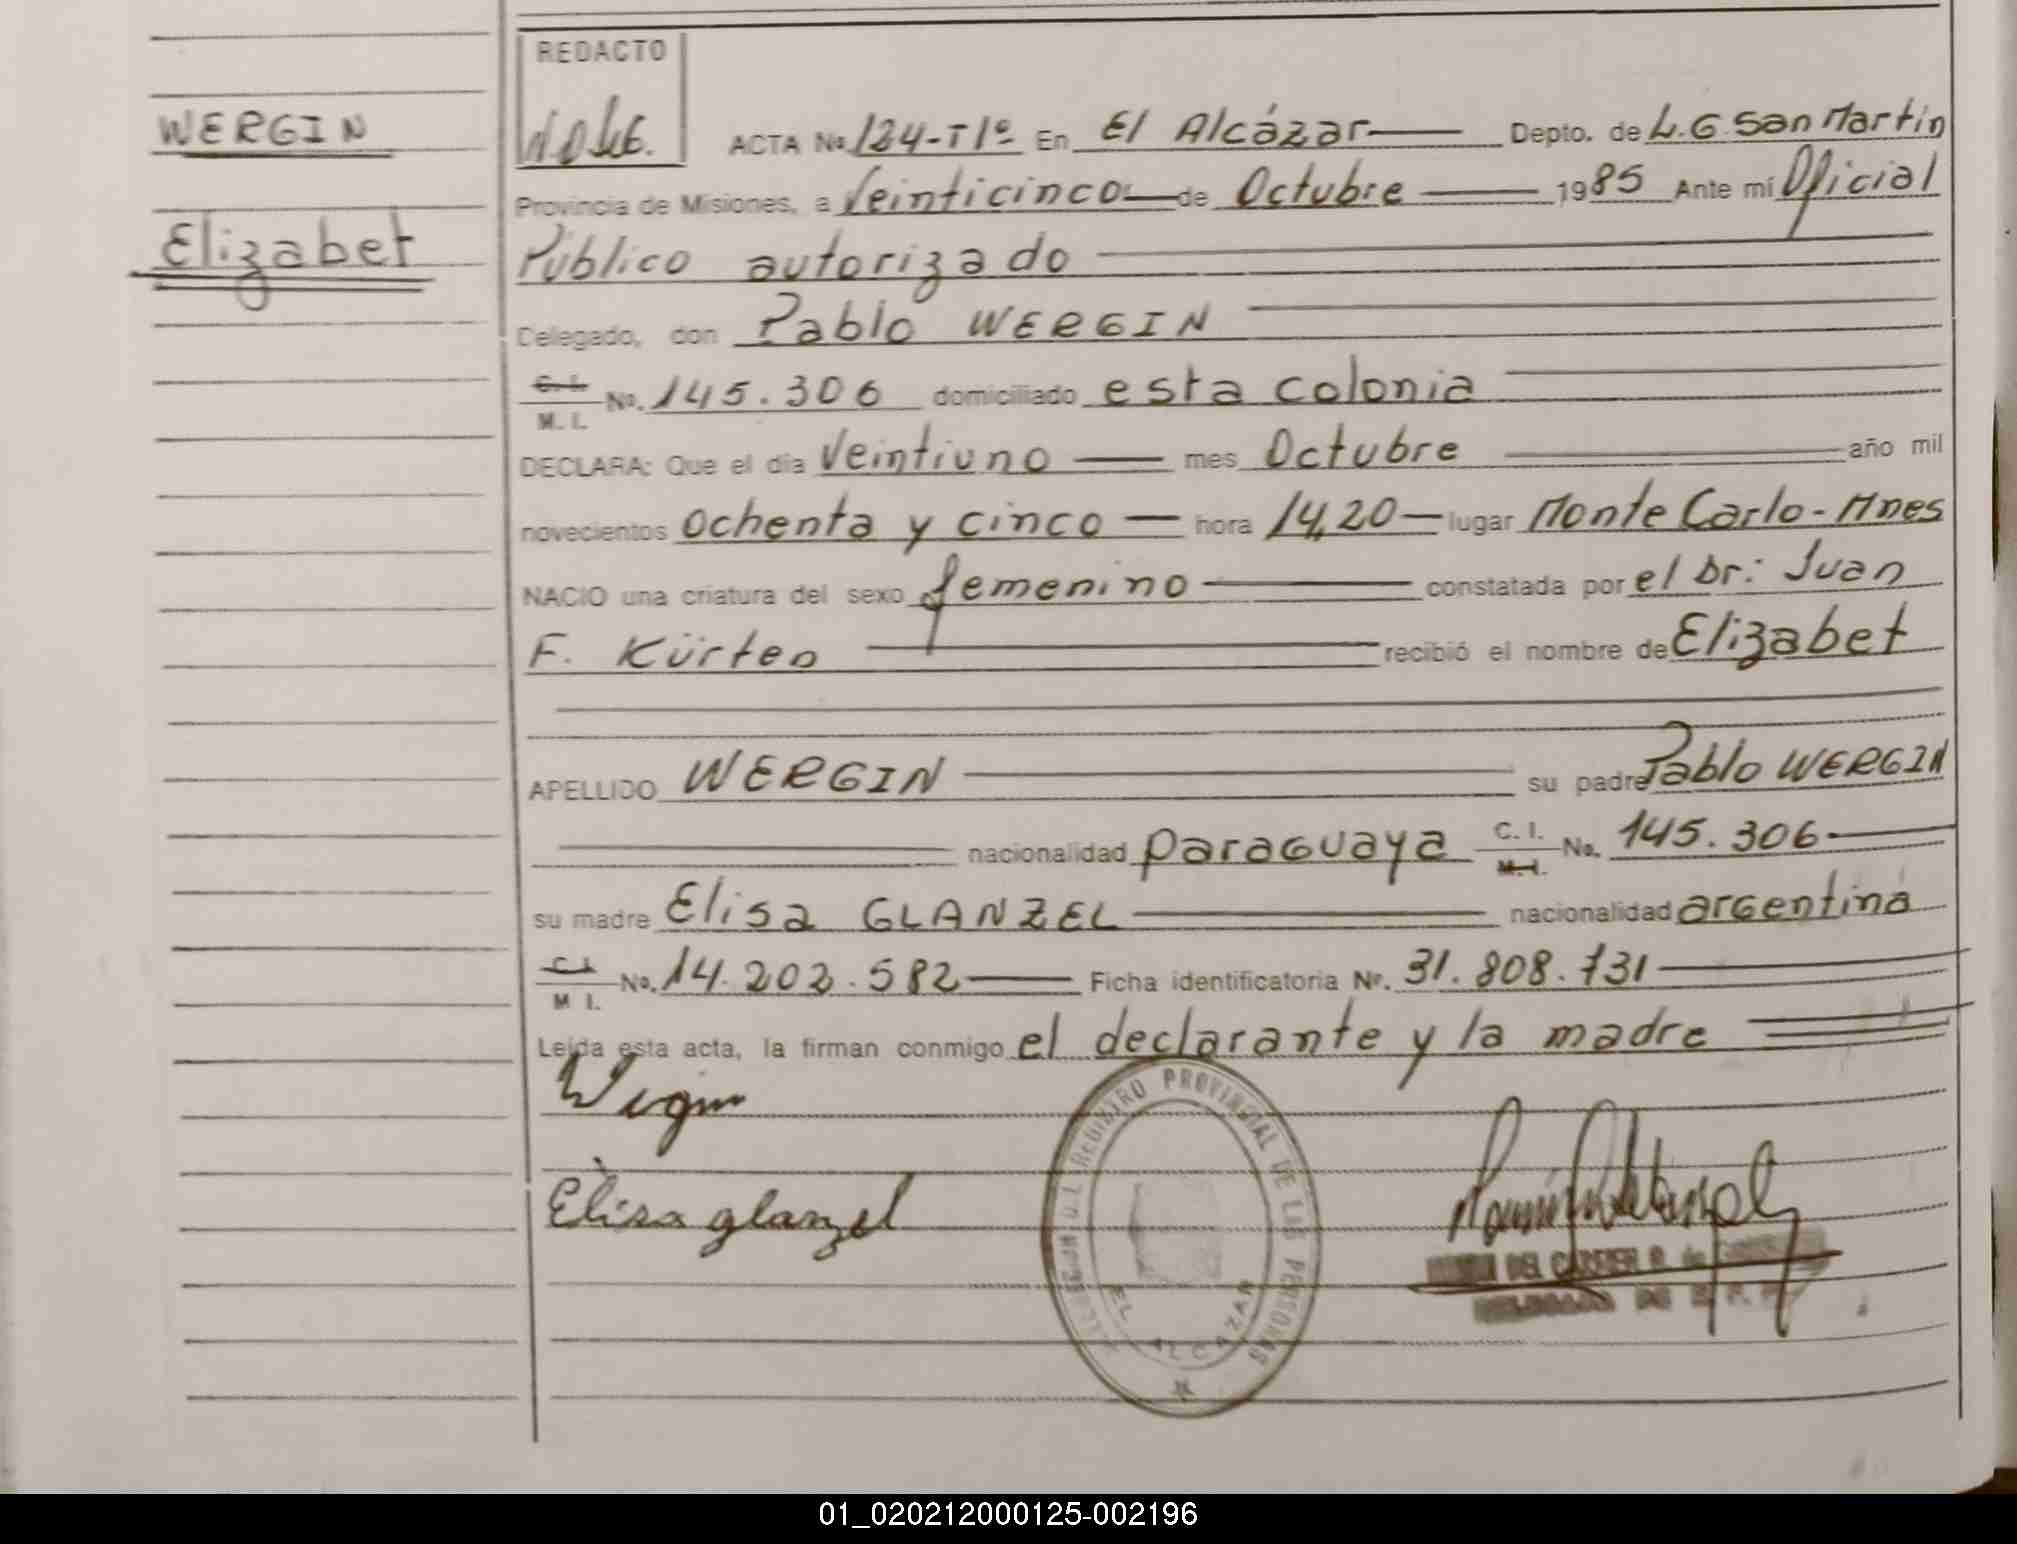 WERGIN
Elizabet
REDACTO
ACTA No 124-T1º En El Alcázar Depto. de L.G. San Martín
Provincia de Misiones, a Veinticinco de Octubre 1985 Ante mí Oficial
Público autorizado
Delegado, don Pablo WERGIN
C. I. M. I. No. 145.306 domiciliado esta colonia
DECLARA: Que el día Veintiuno mes Octubre año mil
novecientos ochenta y cinco hora 14,20 lugar Monte Carlo - Mnes
NACIO una criatura del sexo femenino constatada por el Dr: Juan
F. Kürten recibió el nombre de Elizabet
APELLIDO WERGIN su padre Pablo WERGIN
nacionalidad paraguaya C. I. M. I. No. 145.306
su madre Elisa GLANZEL nacionalidad argentina
C. I. M I. No. 14.202.582 Ficha identificatoria Nº. 31.808.731
Leída esta acta, la firman conmigo el declarante y la madre
Elisa glanzel
REGISTRO PROVINCIAL DE LAS PERSONAS
EL ALCAZAR
DEL CARMEN
01_020212000125-002196